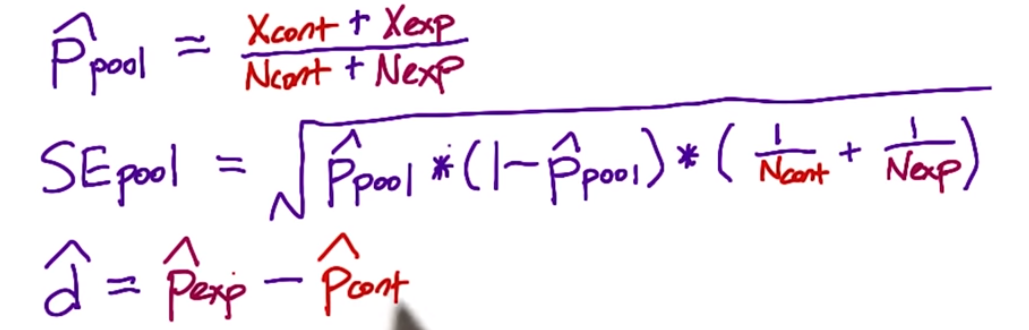 p̂pool = (Xcont + Xexp) / (Ncont + Nexp)
SEpool = √(p̂pool * (1 - p̂pool) * (1/Ncont + 1/Nexp))
d̂ = p̂exp - p̂cont